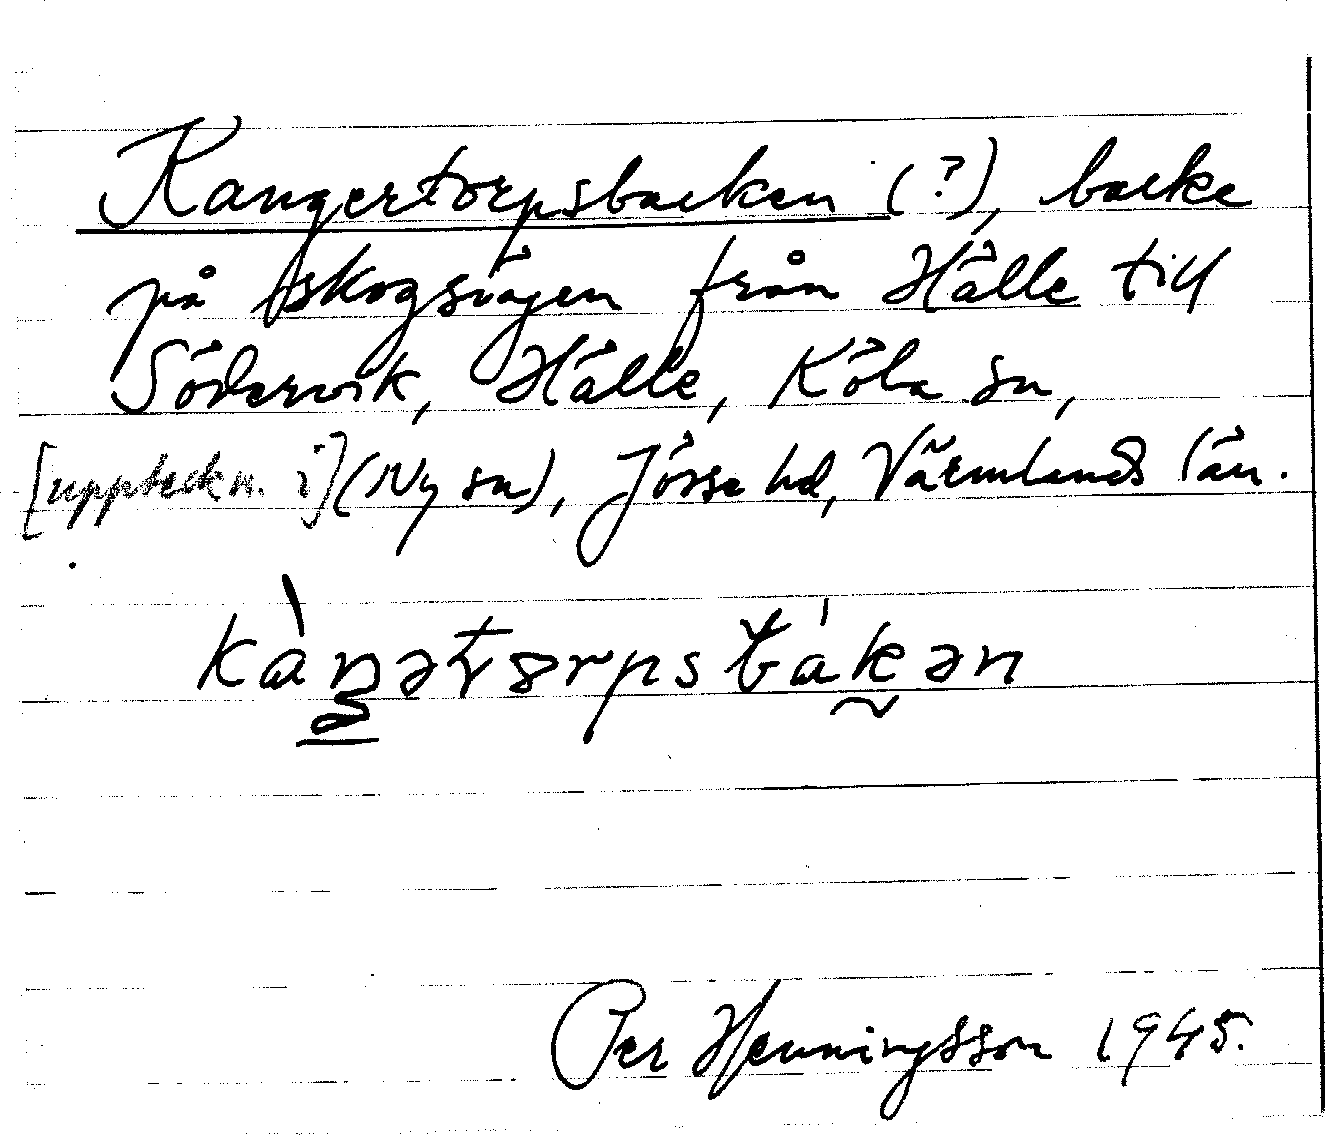 Kangertorpsbacken (?), backe
på skogsvägen från Hälle till
Södervik, Hälle, Köla sn,
[uppteckn. i] (Ny sn), Jösse hd, Värmlands län.
kàŋətɷrpsbákən
Per Henningsson 1945.